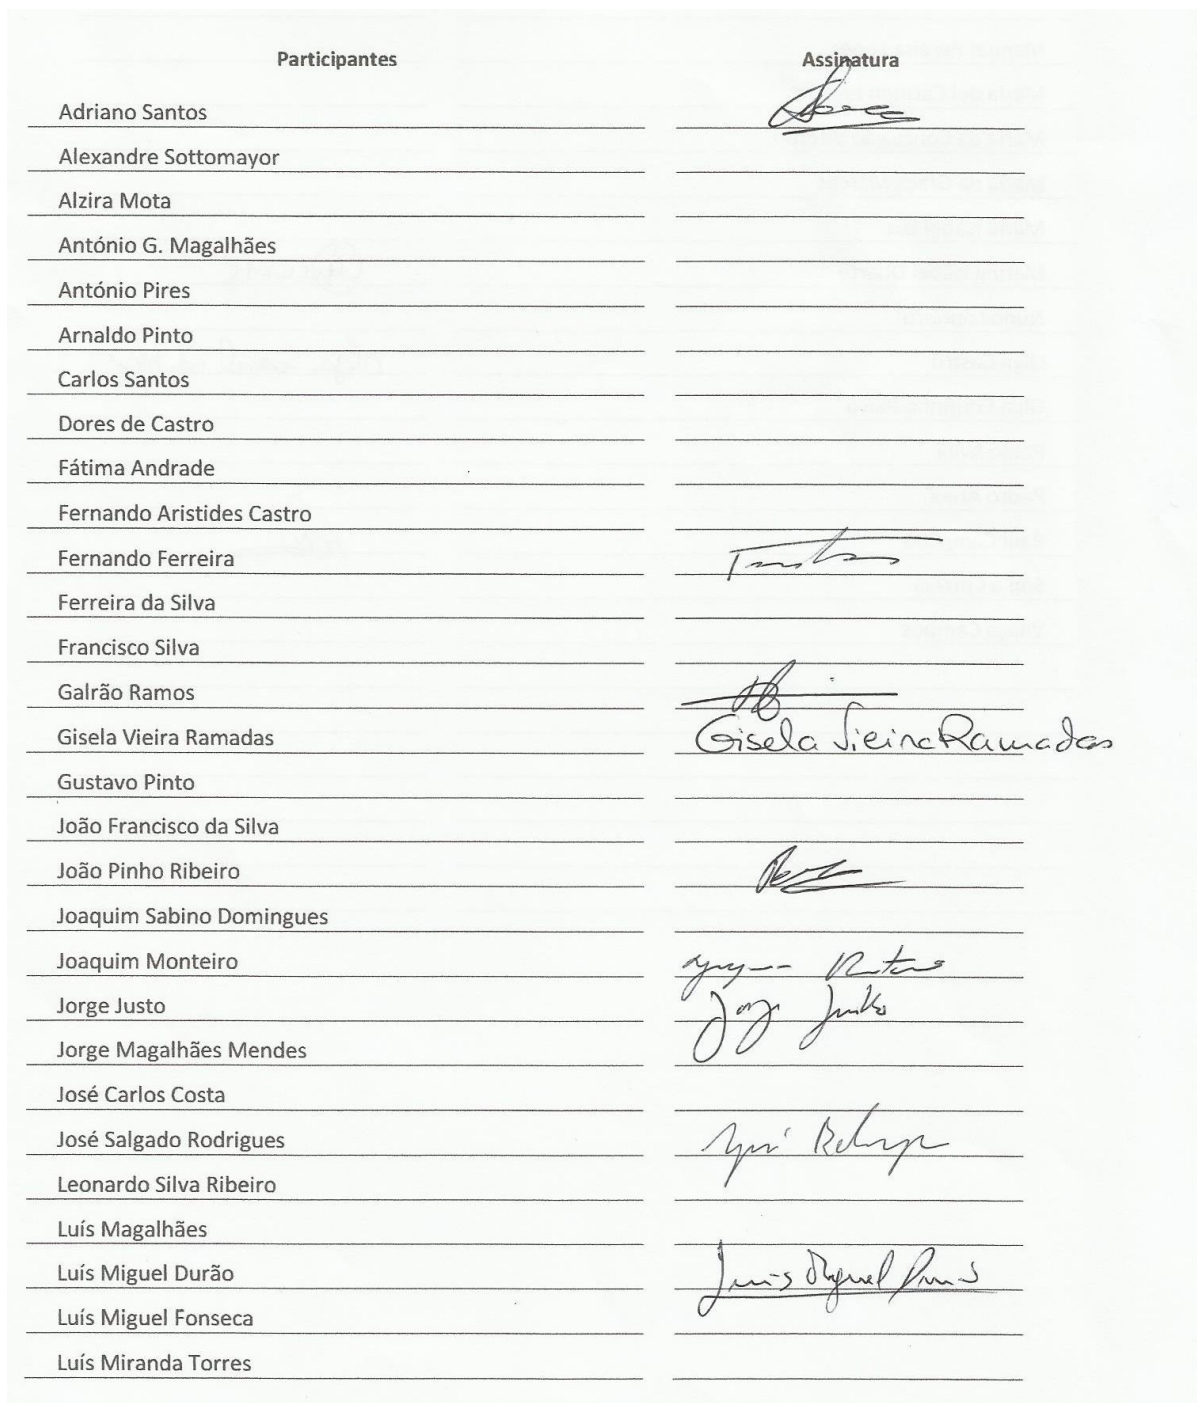 Participantes Assinatura
Adriano Santos
Alexandre Sottomayor
Alzira Mota
António G. Magalhães
António Pires
Arnaldo Pinto
Carlos Santos
Dores de Castro
Fátima Andrade
Fernando Aristides Castro
Fernando Ferreira
Ferreira da Silva
Francisco Silva
Galrão Ramos
Gisela Vieira Ramadas Gisela Vieira Ramadas
Gustavo Pinto
João Francisco da Silva
João Pinho Ribeiro
Joaquim Sabino Domingues
Joaquim Monteiro
Jorge Justo Jorge Justo
Jorge Magalhães Mendes
José Carlos Costa
José Salgado Rodrigues
Leonardo Silva Ribeiro
Luís Magalhães
Luís Miguel Durão Luis Miguel
Luís Miguel Fonseca
Luís Miranda Torres